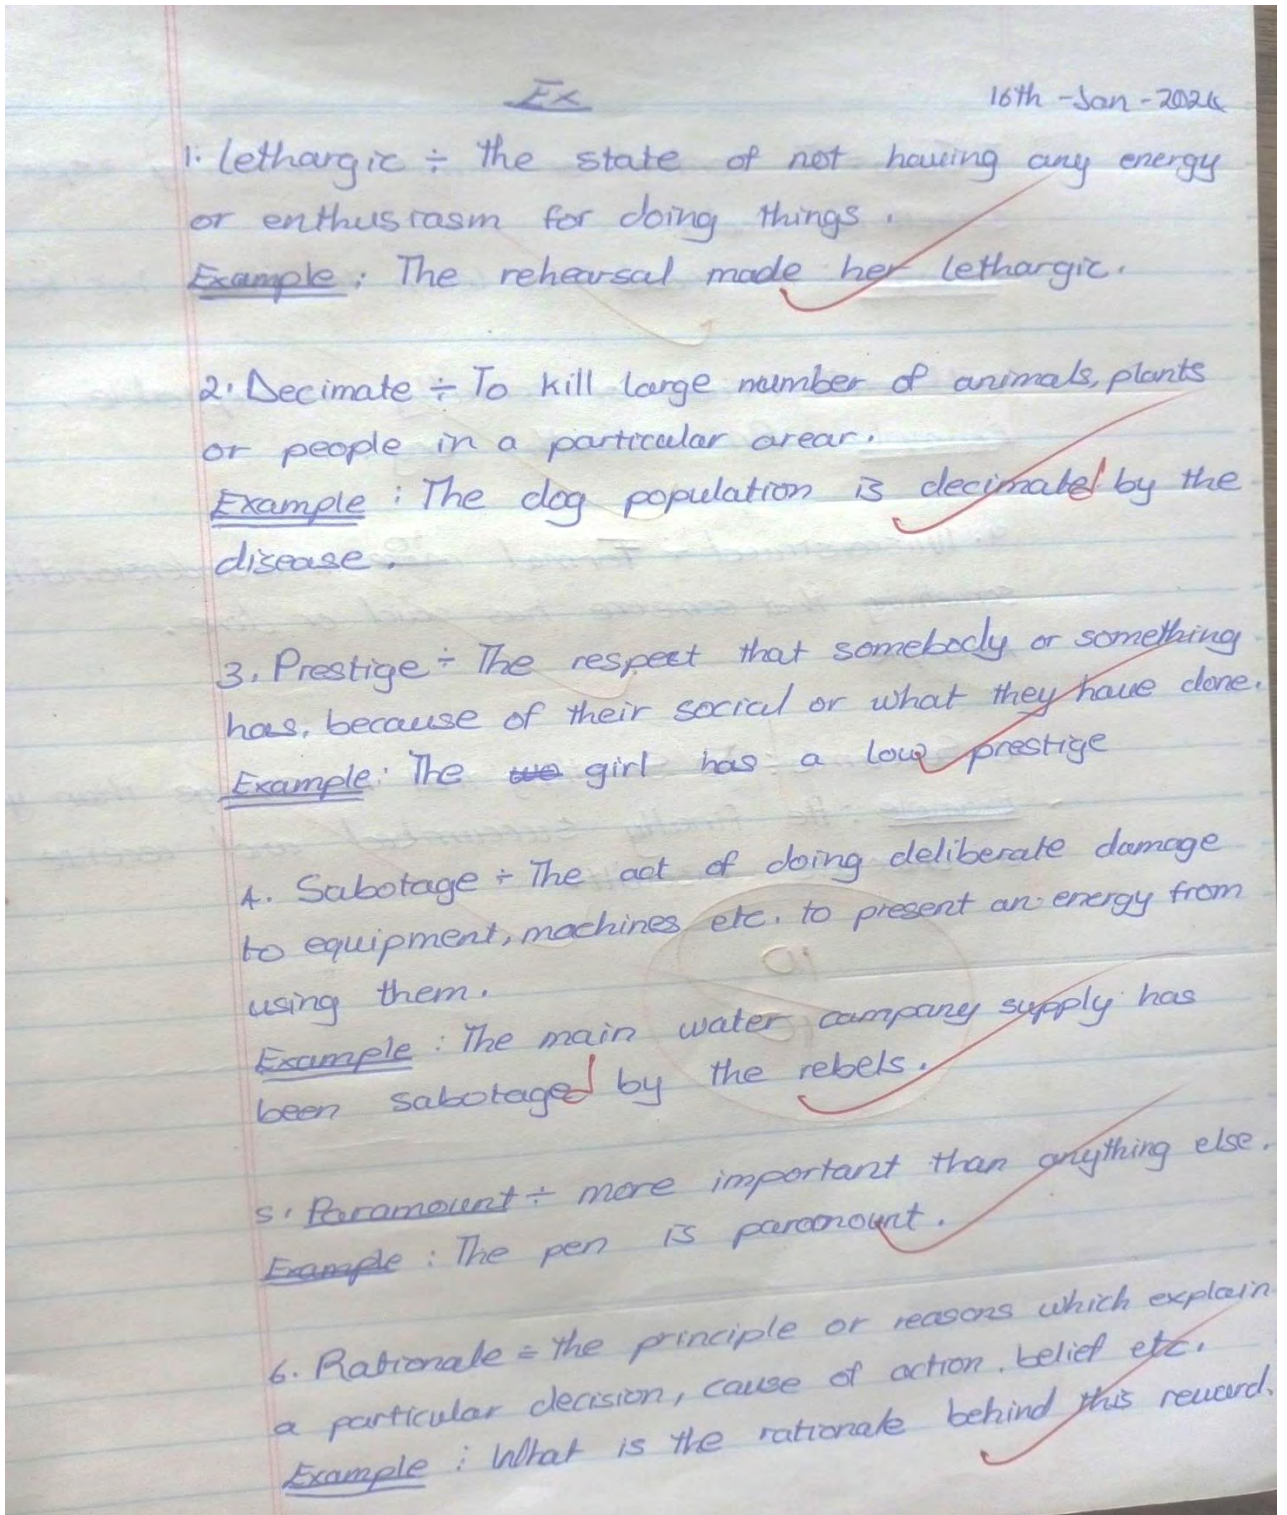 Ex
16th - Jan - 2024
1. Lethargic ÷ the state of not having any energy
or enthusiasm for doing things.
Example : The rehearsal made her lethargic.
2. Decimate ÷ To kill large number of animals, plants
or people in a particular arear.
Example : The dog population is decimated by the
disease.
3. Prestige ÷ The respect that somebody or something
has, because of their social or what they have done.
Example : The girl has a low prestige
4. Sabotage ÷ The act of doing deliberate damage
to equipment, machines etc. to present an energy from
using them.
Example : The main water company supply has
been sabotaged by the rebels.
5. Paramount ÷ more important than anything else.
Example : The pen is paramount.
6. Rationale ÷ the principle or reasons which explain
a particular decision, cause of action. belief etc.
Example : What is the rationale behind this reward.